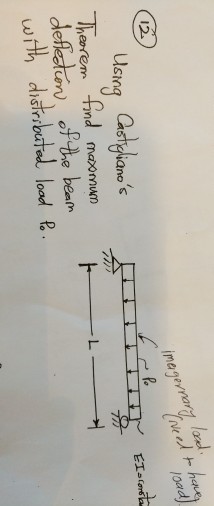 12
Using Castigliano's
Theorem find maximum
deflection of the beam
with distributed load Po.
imagernary load.
(need to have
load)
Po
EI = constan
L